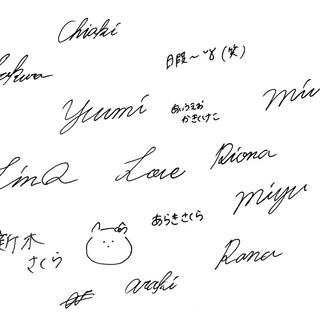 Chiaki
日暇〜‪ɤ(笑)
Yuumi
あいうえお
かきくけこ
Miu
LinQ
Love
Riona
Miyu
あらきさくら
新木
さくら
Rana
araki